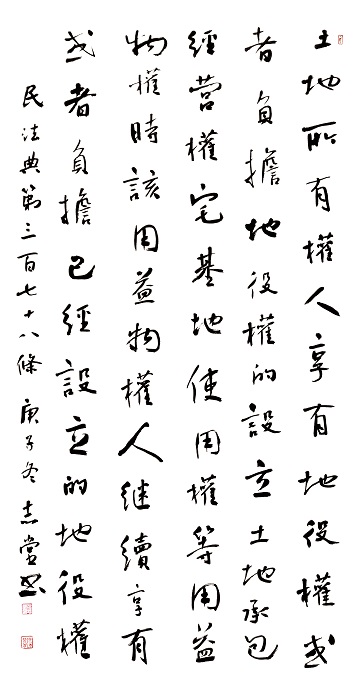 土地所有權人享有地役權或
者負擔地役權的設立土地承包
經營權宅基地使用權等用益
物權時該用益物權人继續享有
或者負擔已經設立的地役權
民法典第三百七十八條 庚子冬 志堂书